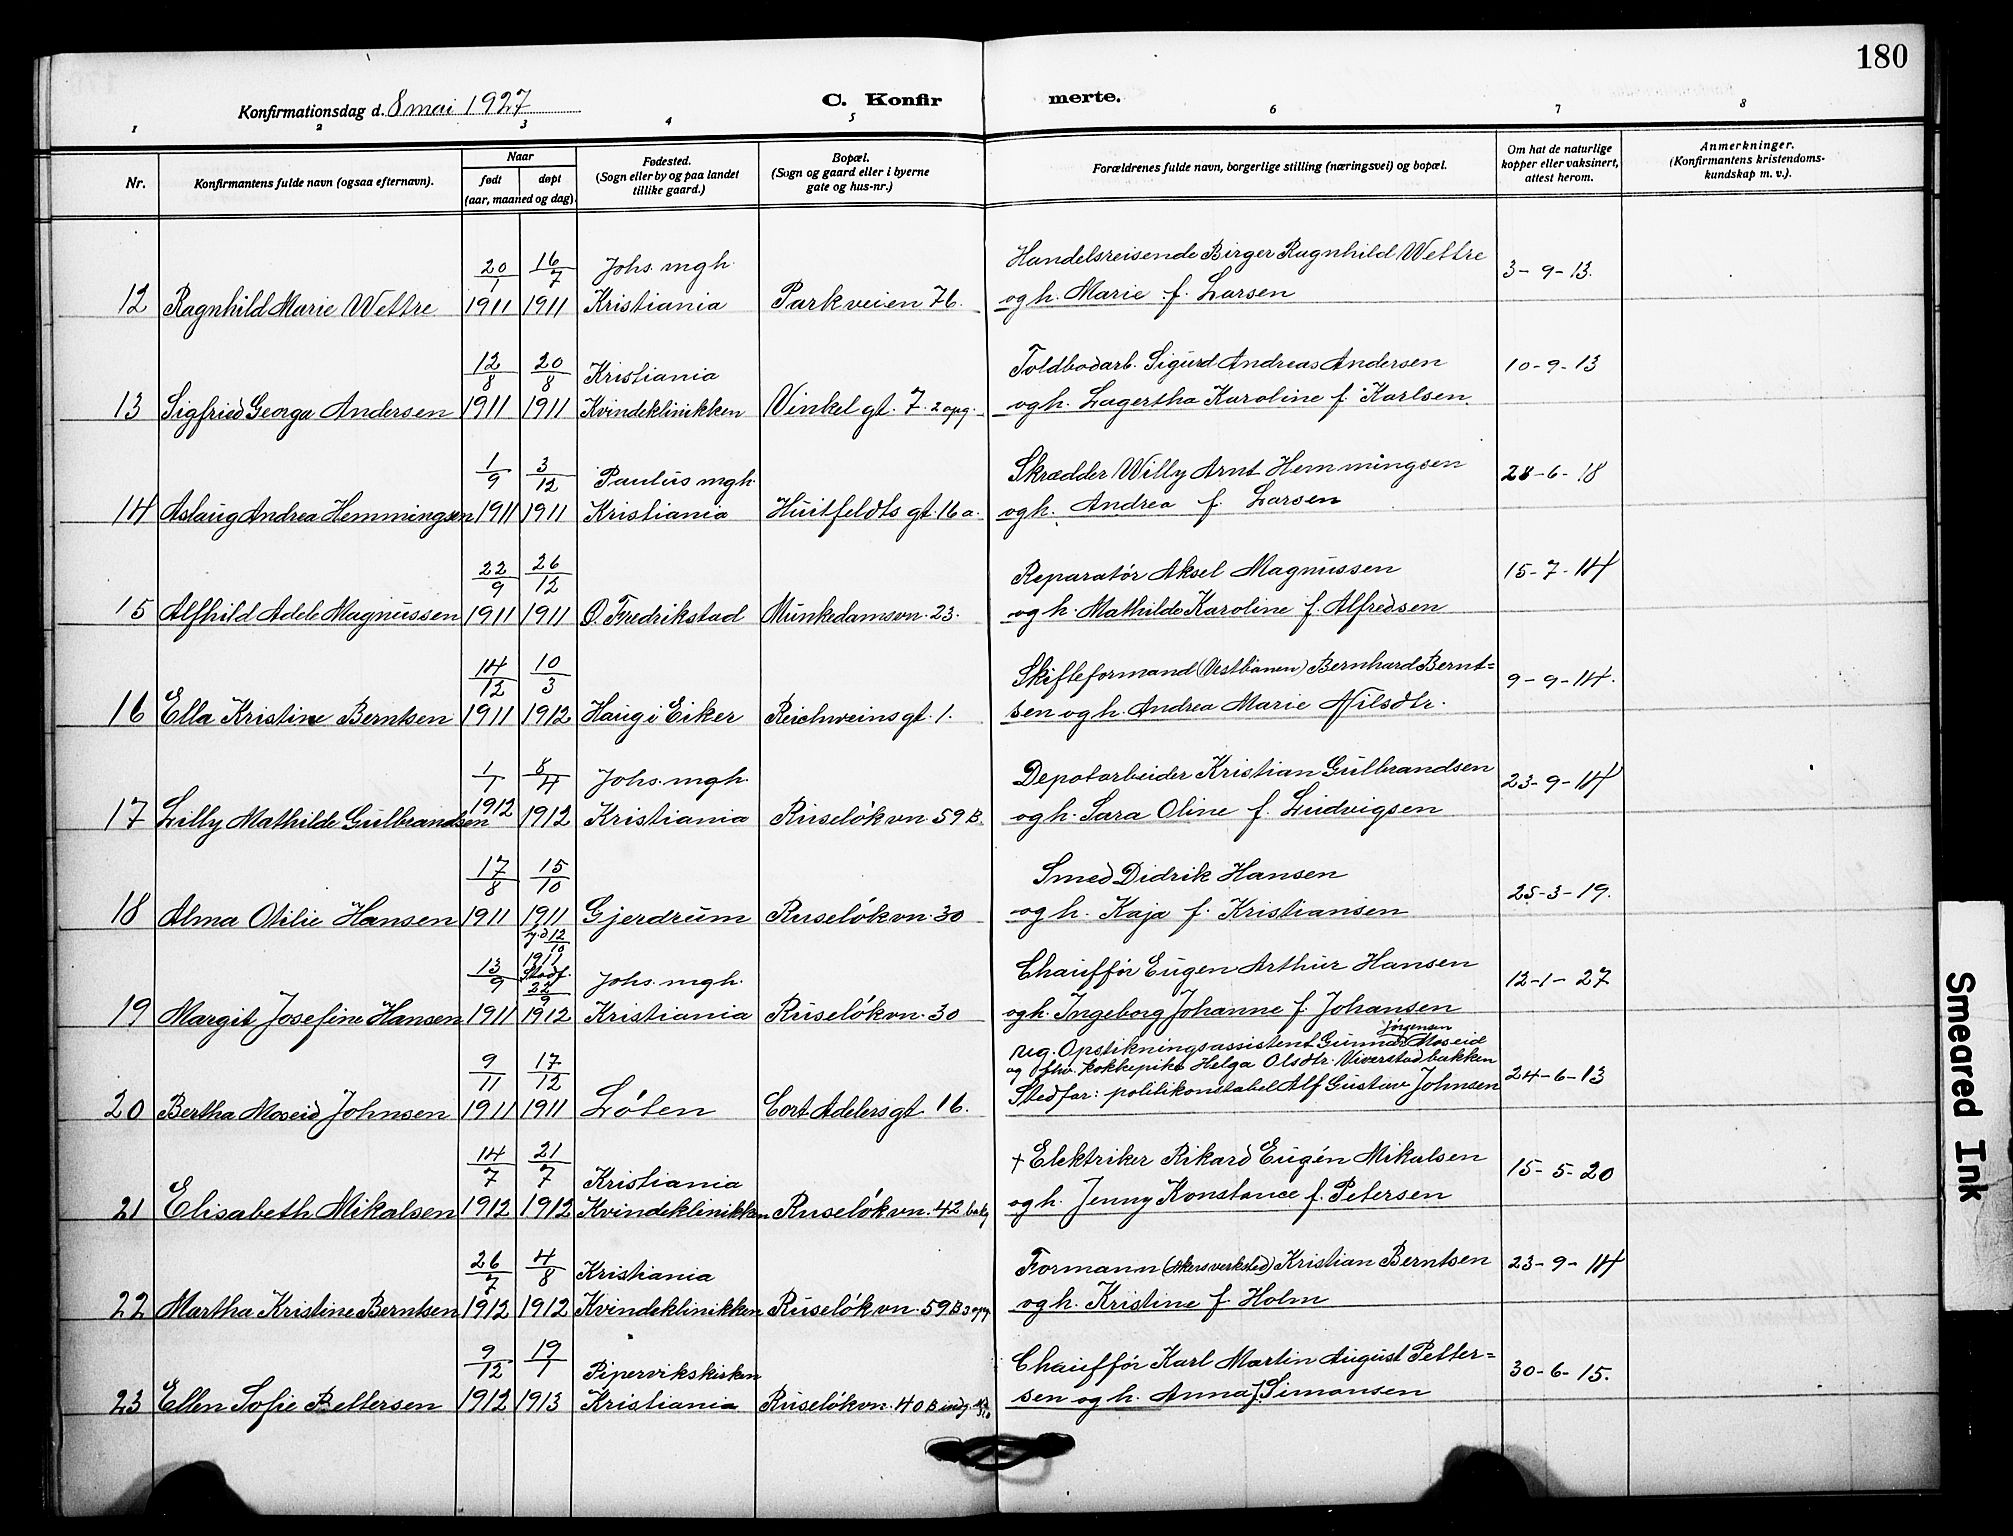 180
Konfirmationsdag d. 8 mai 1927
C. Konfirmerte.
1 2 3 4 5 6 7 8
Nr.
Konfirmantens fulde navn (ogsaa efternavn).
Naar
født
døpt
(aar, maaned og dag).
Fødested.
(Sogn eller by og paa landet
tillike gaard.)
Bopæl.
(Sogn og gaard eller i byerne
gate og hus-nr.)
Forældrenes fulde navn, borgerlige stilling (næringsvei) og bopæl.
Om hat de naturlige
kopper eller vaksinert,
attest herom.
Anmerkninger.
(Konfirmantens kristendoms-
kundskap m. v.).
20/1 16/7 Johs. mgh. Handelsreisende Birger Ragnhild Wettre 3-9-13.
12 Ragnhild Marie Wettre 1911 1911 Kristiania Parkveien 76. og h. Marie f. Larsen
12/8 20/8 Kristiania Toldbodarb. Sigurd Andreas Andersen 10-9-13
13 Sigfried Georga Andersen 1911 1911 Kvindeklinikken Vinkel gt. 7. 2 opg. og h. Lagertha Karoline f. Karlsen.
1/9 3/12 Paulus mgh. Skrædder Willy Arnt Hemmingsen 28-6-18
14 Aslaug Andrea Hemmingsen 1911 1911 Kristiania Huitfeldts gt. 16 a. og h. Andrea f. Larsen
22/9 26/12 Reparatör Aksel Magnussen 15-7-14
15 Alfhild Adele Magnussen 1911 1911 O. Fredrikstad Munkedamsvn. 23. og h. Mathilde Karoline f. Alfredsen
14/12 10/3 Skifteformand (Vestbanen) Bernhard Bernt= 9-9-14.
16 Ella Kristine Berntsen 1911 1912 Haug i Eiker Reichweinsgt. 1. sen og h. Andrea Marie Nilsdtr.
1/1 8/4 Johs. mgh. Depotarbeider Kristian Gulbrandsen 23-9-14
17 Lilly Mathilde Gulbrandsen 1912 1912 Kristiania Ruselökvn. 59 B. og h. Sara Oline f. Ludvigsen
17/8 15/10 Smed Didrik Hansen 25-3-19.
18 Alma Otilie Hansen 1911 1911 Gjerdrum Ruselökvn. 30 og h. Kaja f. Kristiansen
hj.d 12/10
1911
13/9 Stadf. 22/9 Johs. mgh. Chaufför Eugen Arthur Hansen 12-1-27
19 Margit Josefine Hansen 1911 1912 Kristiania Ruselökvn. 30 og h. Ingeborg Johanne f. Johansen
Jörgensen
ug. Opstikningsassistent Gunnar Moseid
9/11 17/12 og fhv. kokkepike Helga Olsdtr. Viverstadbakken 24-6-13
Stedfar: politikonstabel Alf Gustav Johnsen
20 Bertha Moseid Johnsen 1911 1911 Löten Cort Adelersgt. 16.
14/7 21/7 Kristiania † Elektriker Rikard Eugén Mikalsen 15-5-20
21 Elisabeth Mikalsen 1912 1912 Kvindeklinikken Ruselökvn. 42 bakg og h. Jenny Konstance f. Petersen
26/7 4/8 Kristiania Formann (Akersverksted) Kristian Berntsen 23-9-14
22 Martha Kristine Berntsen 1912 1912 Kvindeklinikken Ruselökvn. 59 B 3 opg. og h. Kristine f. Holm
9/12 19/1 Pipervikskirken Chaufför Karl Martin August Petter= 30-6-15.
23 Ellen Sofie Pettersen 1912 1913 Kristiania Ruselökvn. 40 B indg. sen og h. Anna f. Simonsen
Smeared Ink